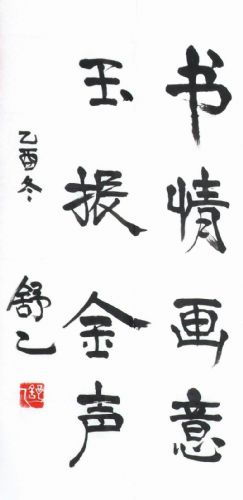 书情画意
玉振金声
乙酉冬
舒乙
舒乙